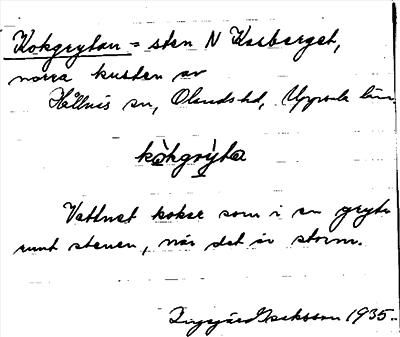 Kokgrytan = sten N Kasberget,
norra kusten av
Hållnäs sn, Olands hd, Uppsala län.
kòkgrỳta
Vattnet kokar som i en gryta
runt stenen, när det är storm.
Isaksson 1935.